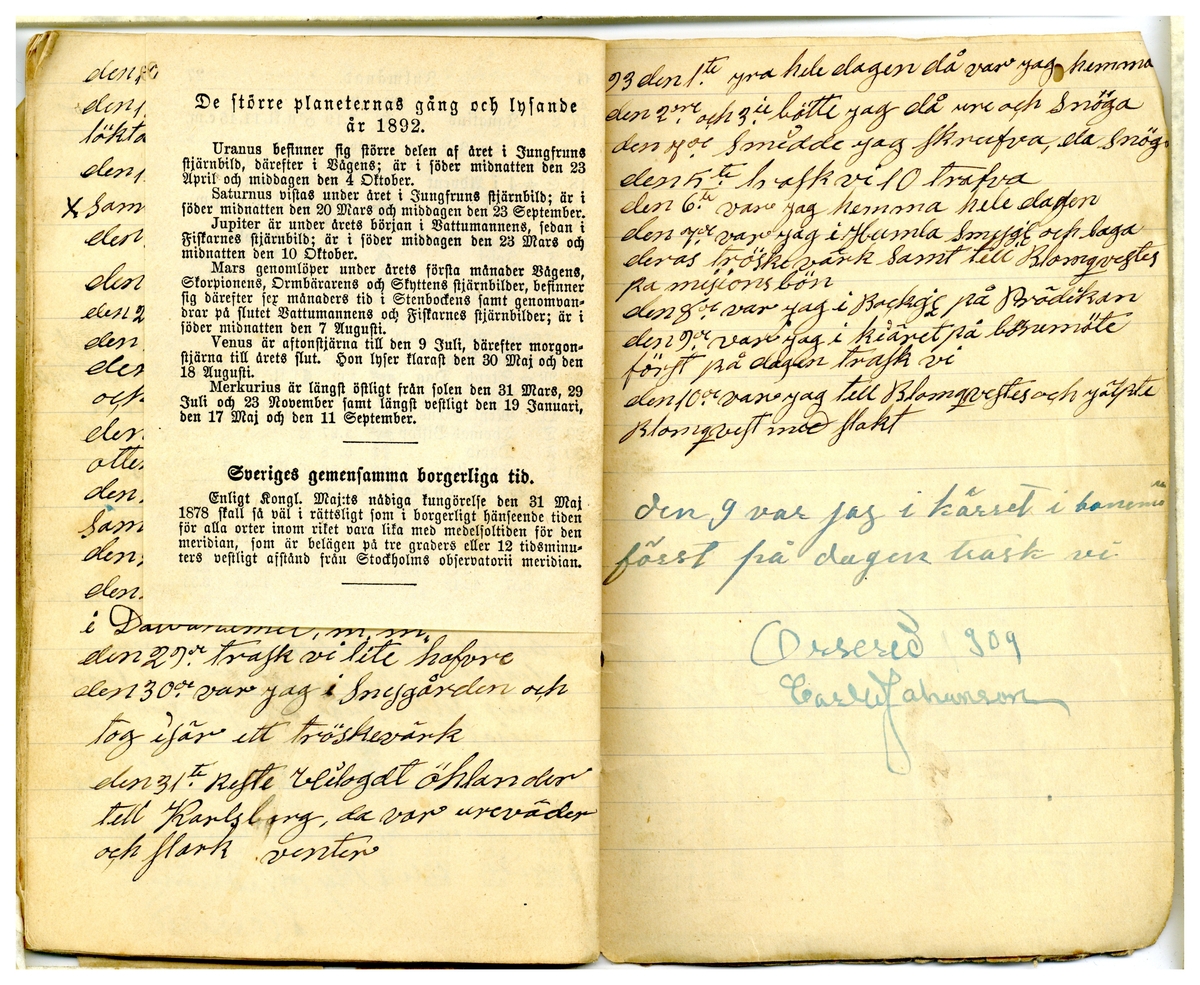 den
den
lökta
den
x Sam
den
den
den 2
den
den
och
den
otte
den
Sam
den
den
i
den 29de trask vi lite hafvre
den 30de var jag i Snysgården och
tog isär ett tröskevärk
den 31te reste öhlander
till Karlsberg, da var ureväder
och stark venter
De större planeternas gång och lysande
år 1892.
Uranus befinner sig större delen af året i Jungfruns
stjärnbild, därefter i Vågens; är i söder midnatten den 23
April och middagen den 4 Oktober.
Saturnus vistas under året i Jungfruns stjärnbild; är i
söder midnatten den 20 Mars och middagen den 23 September.
Jupiter är under årets början i Vattumannens, sedan i
Fiskarnes stjärnbild; är i söder middagen den 23 Mars och
midnatten den 10 Oktober.
Mars genomlöper under årets första månader Vågens,
Skorpionens, Ormbärarens och Skyttens stjärnbilder, befinner
sig därefter sex månaders tid i Stenbockens samt genomvan-
drar på slutet Vattumannens och Fiskarnes stjärnbilder; är i
söder midnatten den 7 Augusti.
Venus är aftonstjärna till den 9 Juli, därefter morgon-
stjärna till årets slut. Hon lyser klarast den 30 Maj och den
18 Augusti.
Merkurius är längst östligt från solen den 31 Mars, 29
Juli och 23 November samt längst vestligt den 19 Januari,
den 17 Maj och den 11 September.
Sveriges gemensamma borgerliga tid.
Enligt Kongl. Maj:ts nådiga kungörelse den 31 Maj
1878 skall så väl i rättsligt som i borgerligt hänseende tiden
för alla orter inom riket vara lika med medelsoltiden för den
meridian, som är belägen på tre graders eller 12 tidsminu-
ters vestligt afstånd från Stockholms observatorii meridian.
93 den 1te yra hele dagen då var jag hemma
den 2dre och 3ie bötte jag då ure och Snöga
den 4de Smidde jag skrufva, da Snög
den 5te trask vi 10 trafva
den 6te var jag hemma hele dagen
den 7de var jag i Humla Smygi och laga
deras tröskevärk Samt till Blomqvestes
pa misions bön
den 8de var jag i på Brödikan
den 9de var jag i kiäret på bönemöte
först på dagen trask vi
den 10de var jag tell Blomqvestes och jälpte
Blomqvest med slakt
den 9 var jag i kärret i bönemö
först på dagen trask vi
Orsered 909
Carl Johanson